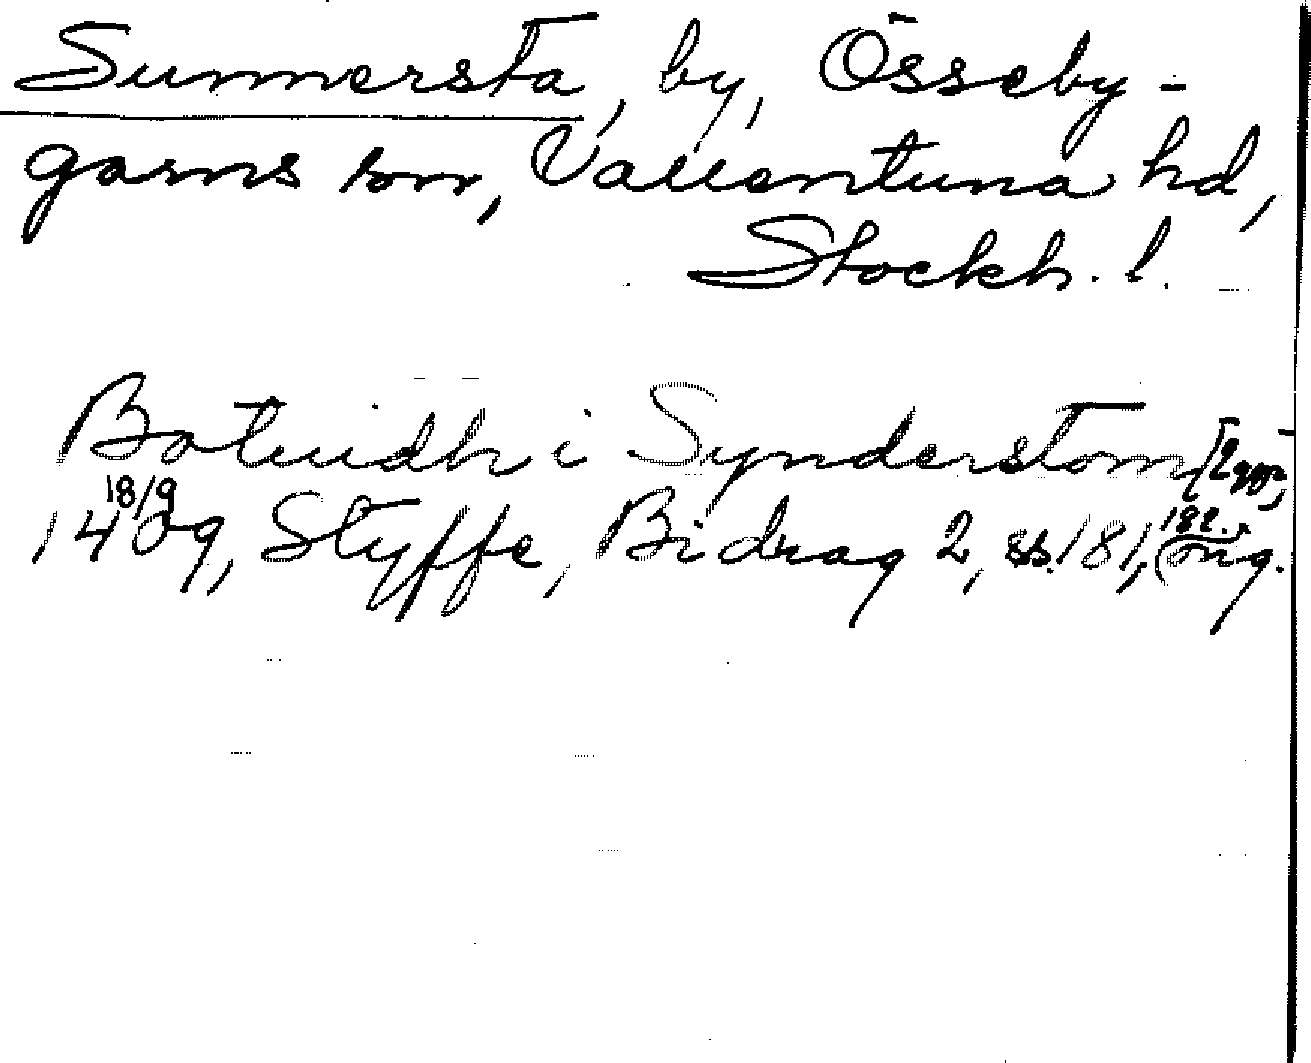 Sunnersta, by, Össeby-
garns sn, Vallentuna hd,
Stockh. l.
Botuidh i Synderstom [2 ggr],
18/9 1409, Styffe, Bidrag 2, ss. 181, 182. (orig.